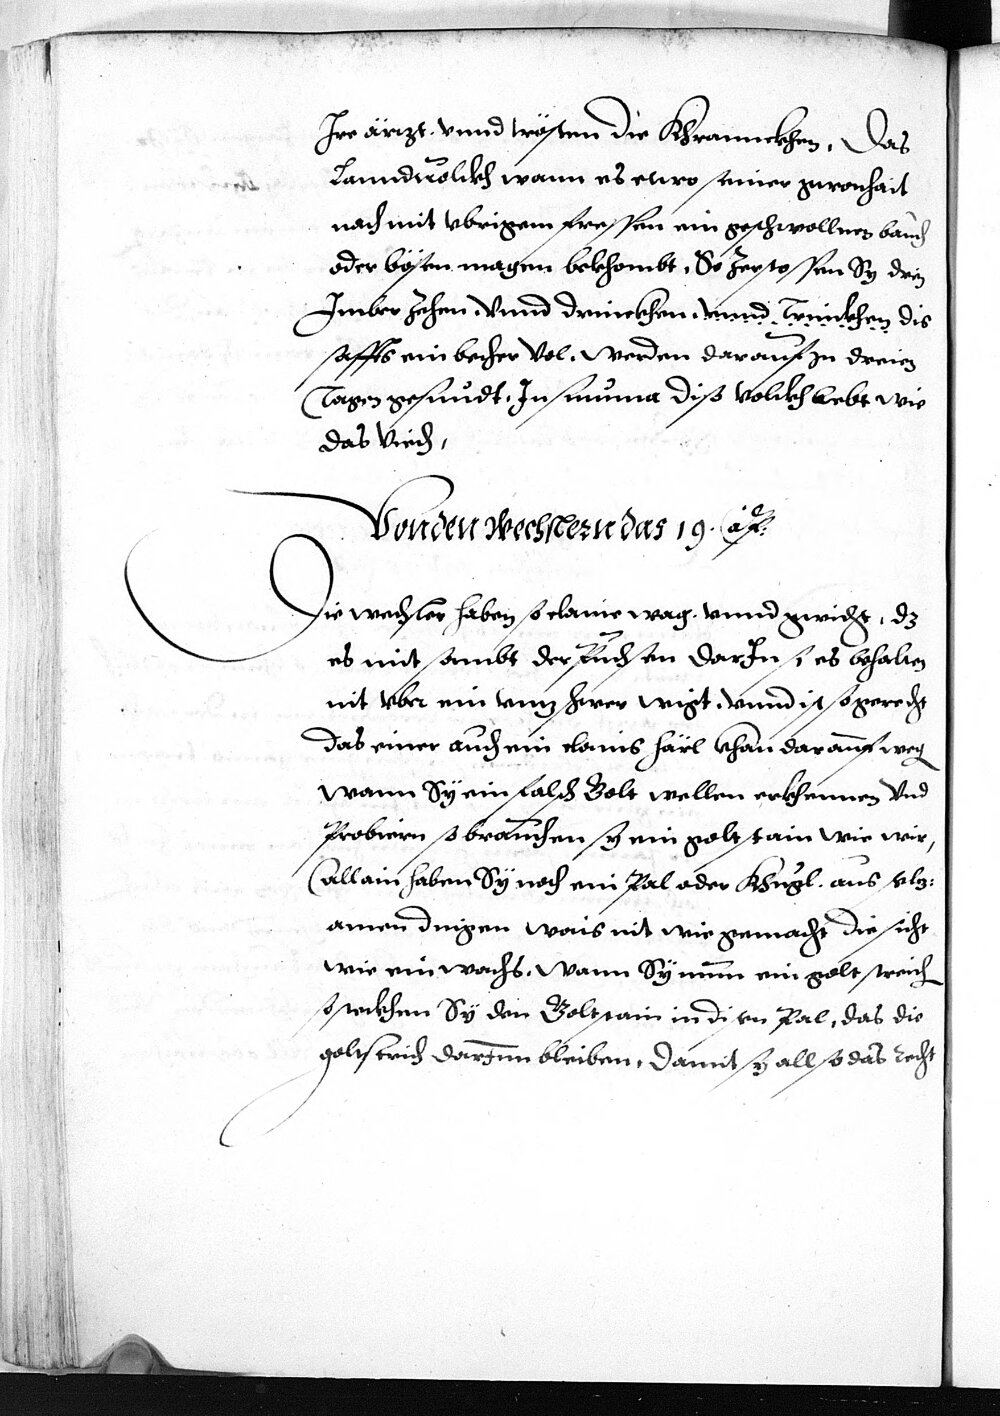 Ire ärtzt. vnnd trösten die Khrannckhen. Das
Lanndvolckh wann es etwo seiner gwonhait
nach mit vbrigem fressen ein geschwollnen bauch
oder bösen magen bekhombt, So Zerstossen Sy drey
Imber Zehen. Vnnd drinckhen. vnnd Trinckhen dis
saffts ein becher Vol. werden darauf zu dreien
Tagen gesundt. In summa diß volckh lebt wie
das viech,
Von den wechslern das 19. Cap:
Die wechsler haben so claine wag. vnnd gwicht, dz
es mit sambt der Puchsen darIn s es behalten
nit vber ein vnz schwer wigt. vnnd ist so gerecht
das einer auch ein clains härl khan darauf weg
wann Sy ein falsch Golt wellen erkhennen Vnd
Probiern so brauchen sy ein goltstain wie wir,
allain haben Sy noch ein Pal oder Khugl. aus
dingen wais nit wie gemacht die sicht
wie ein wachs. wann Sy nunn ein golt streich
so steckhen Sy den Goltstain in disen Pal, das die
goltstrich darInn bleiben, damit sy all so das recht